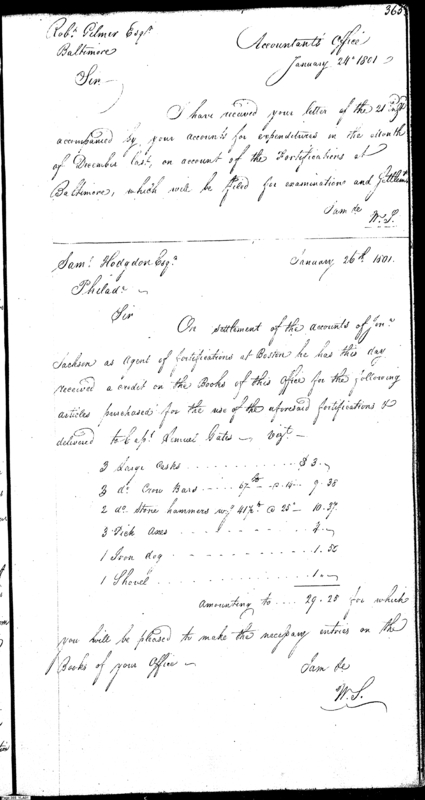 363
Robt. Gilmor Esqr.
Baltimore
Accountant's Office
January 24th 1801
Sir
I have received your letter of the 21st Inst
accompanied by your accounts for expenditures in the Month
of December last, on account of the Fortifications at
Baltimore, which will be filed for examination and Settlemt.
I am &c
W. S.
Saml. Hodgdon Esqr.
January 26th 1801.
Philada.
Sir
On settlement of the accounts of Jonn.
Jackson as Agent of Fortifications at Boston he has this day
received a credit on the Books of this Office for the following
articles purchased for the use of the aforesaid fortifications &
delivered to Capt. Lemuel Gates Vizt.
3 Large Casks $ 3
3 do. Crow Bars 67 lb 9. 38
2 do. Stone hammers wg. 41½ @ 25 10. 37
3 Pick Axes
1 Iron dog 1. 52
1 Shovel 1
amounting to 29. 28 for which
you will be pleased to make the necessary entries on the
Books of your Office
I am &c
W. S.